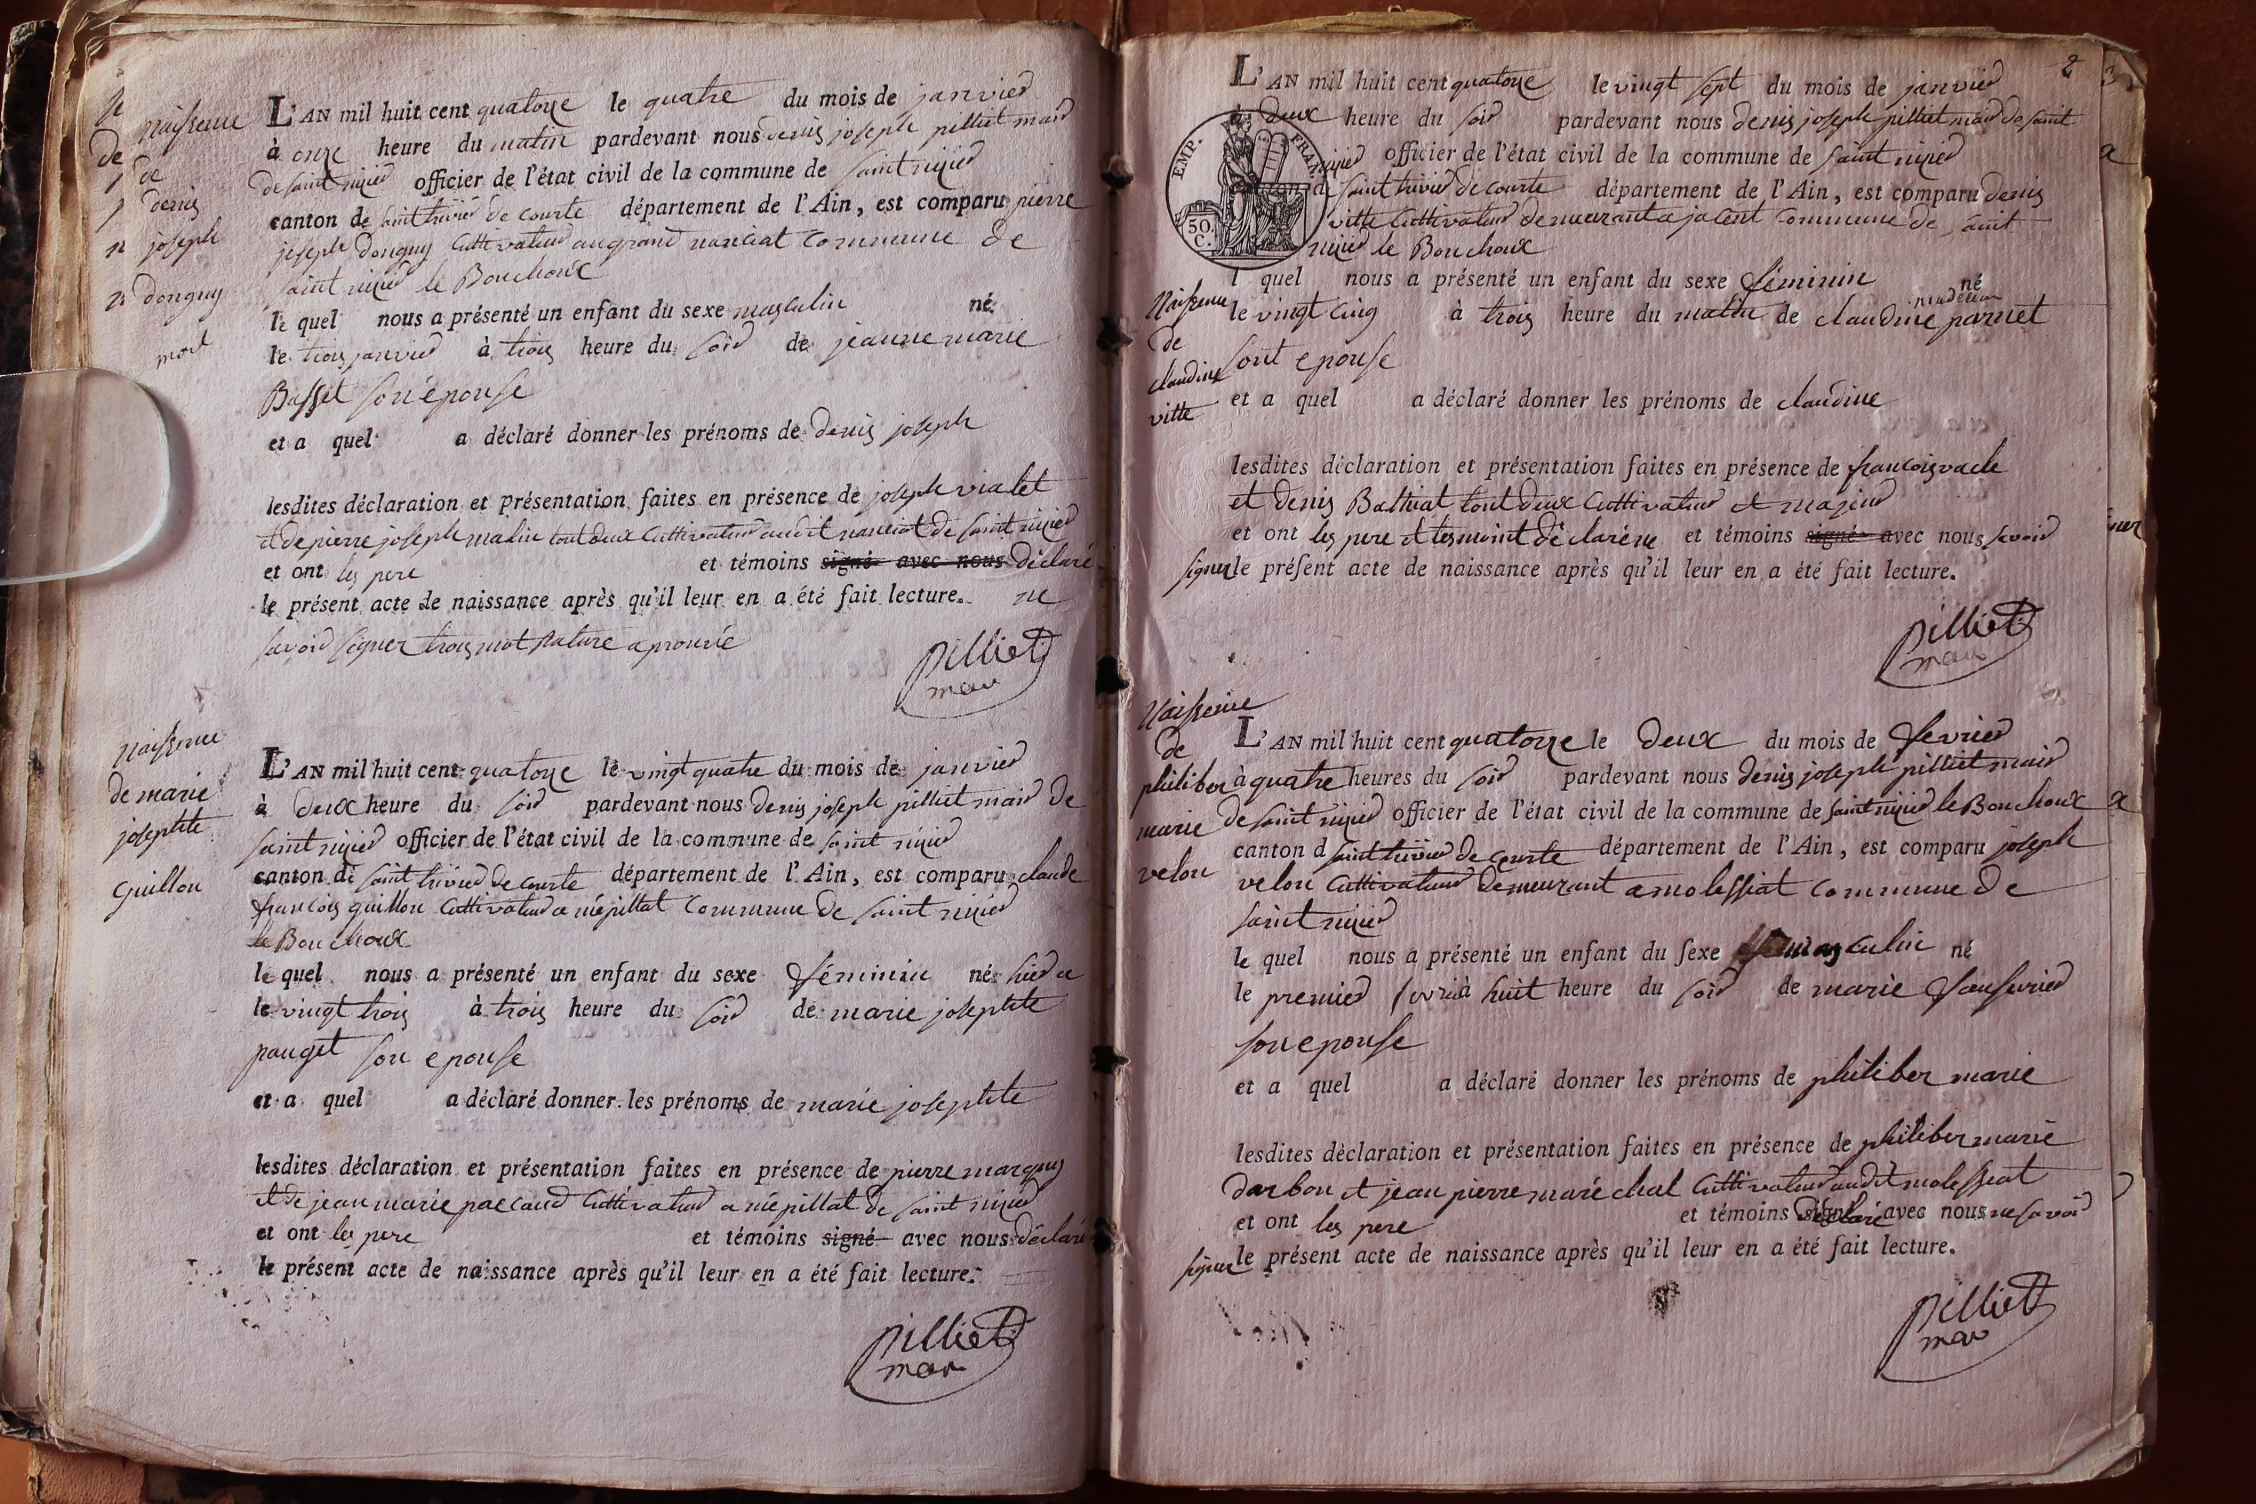 naissence
de
denis
joseph
donguy
mort
L'AN mil huit cent quatorze le quatre du mois de janvier
à onze heure du matin pardevant nous denis joseph pilliet maid
de saint nizied officier de l'état civil de la commune de saint nizied
canton de saint trivied de courte département de l'Ain, est comparu pierre
joseph donguy cultivateur au grand nanciat commune de
saint nizied le Bouchoux
le quel nous a présenté un enfant du sexe masculin né
le trois janvied à trois heure du soid de jeanne marie
Basset son épouse
et a quel a déclaré donner les prénoms de denis joseph
lesdites déclaration et présentation faites en présence de joseph vialet
et de pierre joseph malin tout deux cultivateur audit nanciat de saint nizied
et ont les pere et témoins signé avec nous déclaré
le présent acte de naissance après qu'il leur en a été fait lecture. ne
savoid signer trois mot rature aprouvé
pilliet
mair
naissence
de marie
josephte
Guillon
L'AN mil huit cent quatorze le vingt quatre du mois de janvied
à deux heure du soid pardevant nous denis joseph pilliet maid de
saint nizied officier de l'état civil de la commune de saint nizied
canton de saint trivied de courte département de l'Ain, est comparu claude
francois guillon cultivateur a mépillat commune de saint nizied
le Bouchoux
le quel nous a présenté un enfant du sexe féminin né hied
le vingt trois à trois heure du soid de marie josephte
pauget son epouse
et a quel a déclaré donner les prénoms de marie josephte
lesdites déclaration et présentation faites en présence de pierre marguy
et de jean marie paccaud cultivateur a mépillat de saint nizied
et ont les pere et témoins signé avec nous déclaré
le présent acte de naissance après qu'il leur en a été fait lecture.
pilliet
mair
2
L'AN mil huit cent quatorze le vingt sept du mois de janvied
à deux heure du soid pardevant nous denis joseph pilliet maid de saint
nizied officier de l'état civil de la commune de saint nizied
EMP. FRAN.
50 C.
saint trivied de courte département de l'Ain, est comparu denis
vitte cultivateur demeurant a jacent commune de saint
nizied le Bouchoux
l quel nous a présenté un enfant du sexe féminin né
Naissence
de
claudine
vitte
le vingt cinq à trois heure du matin de claudine parnet
sont epouse
et a quel a déclaré donner les prénoms de claudine
lesdites déclaration et présentation faites en présence de francois vacle
et denis Bathiat tout deux cultivateur et majeur
et ont les pere et tesmoint déclaré ne et témoins signé avec nous savoid
signer le présent acte de naissance après qu'il leur en a été fait lecture.
pilliet
mair
Naissence
de
philiber
marie
velon
L'AN mil huit cent quatorze le deux du mois de fevried
à quatre heures du soid pardevant nous denis joseph pilliet maid
de saint nizied officier de l'état civil de la commune de saint nizied le Bouchoux
canton d saint trivied de courte département de l'Ain, est comparu joseph
velon cultivateur demeurant a molessiat commune de
saint nizied
le quel nous a présenté un enfant du sexe masculin né
le premied fevrie à huit heure du soid de marie
son epouse
et a quel a déclaré donner les prénoms de philiber marie
lesdites déclaration et présentation faites en présence de philiber marie
darbon et jean pierre maréchal cultivateur audit molessiat
et ont les pere et témoins signé déclaré avec nous ne savoid
signer le présent acte de naissance après qu'il leur en a été fait lecture.
pilliet
mair